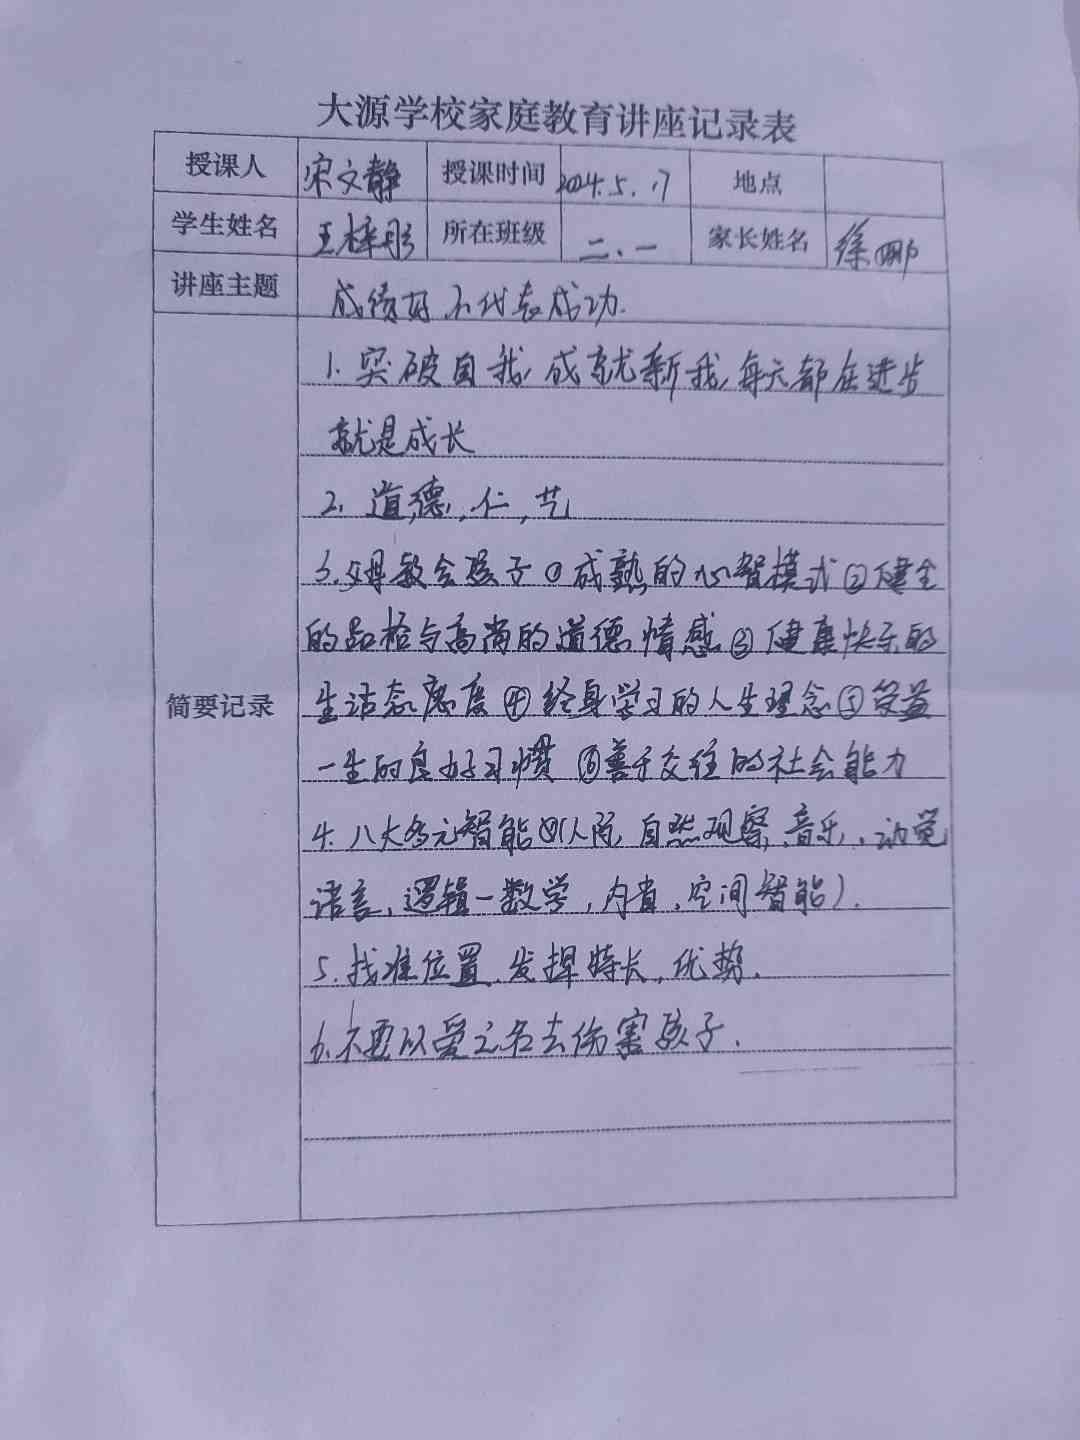 大源学校家庭教育讲座记录表
授课人 宋文静 授课时间 2024.5.17 地点
学生姓名 王梓彤 所在班级 二.一 家长姓名 徐娜
讲座主题 成绩好不代表成功.
简要记录
1. 突破自我,成就新我,每天都在进步
就是成长
2. 道,德,仁,艺
3.父母教会孩子①成熟的心智模式②健全
的品格与高尚的道德情感③健康快乐的
生活态度④终身学习的人生理念⑤受益
一生的良好习惯⑥善于交往的社会能力
4.八大多元智能(人际,自然观察,音乐,动觉
语言,逻辑一数学,内省,空间智能).
5.找准位置,发挥特长,优势.
6.不要以爱之名去伤害孩子.